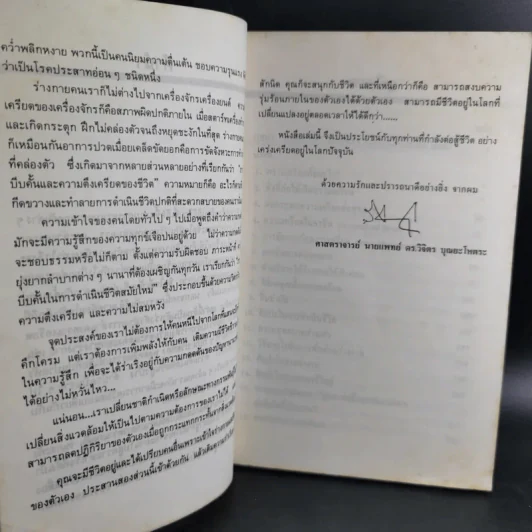 คว่ำพลิกหงาย พวกนี้เป็นคนนิยมความตื่นเต้น ชอบความรุนแรง
ว่าเป็นโรคประสาทอ่อน ๆ ชนิดหนึ่ง
ร่างกายคนเราก็ไม่ต่างไปจากเครื่องจักรเครื่องยนต์
เครียดของเครื่องจักรก็คือสภาพผิดปกติภายใน เมื่อสตาร์ทเครื่อง
และเกิดกระตุก ฝืกไม่คล่องตัวจนถึงหยุดชะงักในที่สุด
ก็เหมือนกันอาการปวดเมื่อยเคล็ดขัดยอกคือการขัดจังหวะการ
ที่คล่องตัว ซึ่งเกิดมาจากหลายส่วนหลายอย่างที่เรียกกันว่า
บีบคั้นและความตึงเครียดของชีวิต" ความหมายก็คือ
กีดขวางและทำลายการดำเนินชีวิตปกติที่สะดวกสบายของ
ความเข้าใจของคนโดยทั่วไป ๆ ไปเมื่อพูดถึงคำว่า
มักจะมีความรู้สึกของความทุกข์เจือปนอยู่ด้วย ไม่ว่า
จะชอบธรรมหรือไม่ก็ตาม ตั้งแต่ความรับผิดชอบ ภาระหน้าที่
ยุ่งยากลำบากต่าง ๆ นานาที่ต้องเผชิญกันทุกวัน เราเรียกกันว่า
บีบคั้นในการดำเนินชีวิตสมัยใหม่" ซึ่งประกอบขึ้นด้วย
ความตึงเครียด และความไม่สมหวัง
จุดประสงค์ของเราไม่ต้องการให้คนหนีไปจากโลก
คึกโครม แต่เราต้องการเพิ่มพลังให้กับคน เติมความมีชีวิตชีวา
ในความรู้สึก เพื่อจะได้ร่าเริงอยู่กับความกดดันของปัญหา
ได้อย่างไม่หวั่นไหว...
แน่นอน...เราเปลี่ยนชาติกำเนิดหรือลักษณะทางกรรมพันธุ์
เปลี่ยนสิ่งแวดล้อมให้เป็นไปตามความต้องการของเราไม่ได้
สามารถลดปฏิกิริยาของตัวเองเมื่อถูกกระแทกกระทั้น
คุณจะมีชีวิตอยู่และได้เปรียบคนอื่นเพราะเข้าใจ
ของตัวเอง ประสานสองส่วนนี้เข้าด้วยกัน
สักนิด คุณก็จะสนุกกับชีวิต และที่เหนือกว่าก็คือ สามารถสงบความ
รุ่มร้อนภายในของตัวเองได้ด้วยตัวเอง สามารถมีชีวิตอยู่ในโลกที่
เปลี่ยนแปลงอยู่ตลอดเวลาให้ได้ดีกว่า......
หนังสือเล่มนี้ จึงเป็นประโยชน์กับทุกท่านที่กำลังต่อสู้ชีวิต อย่าง
เคร่งเครียดอยู่ในโลกปัจจุบัน
ด้วยความรักและปรารถนาดีอย่างยิ่ง จากผม
ศาสตราจารย์ นายแพทย์ ดร.วิจิตร บุณยะโหตระ